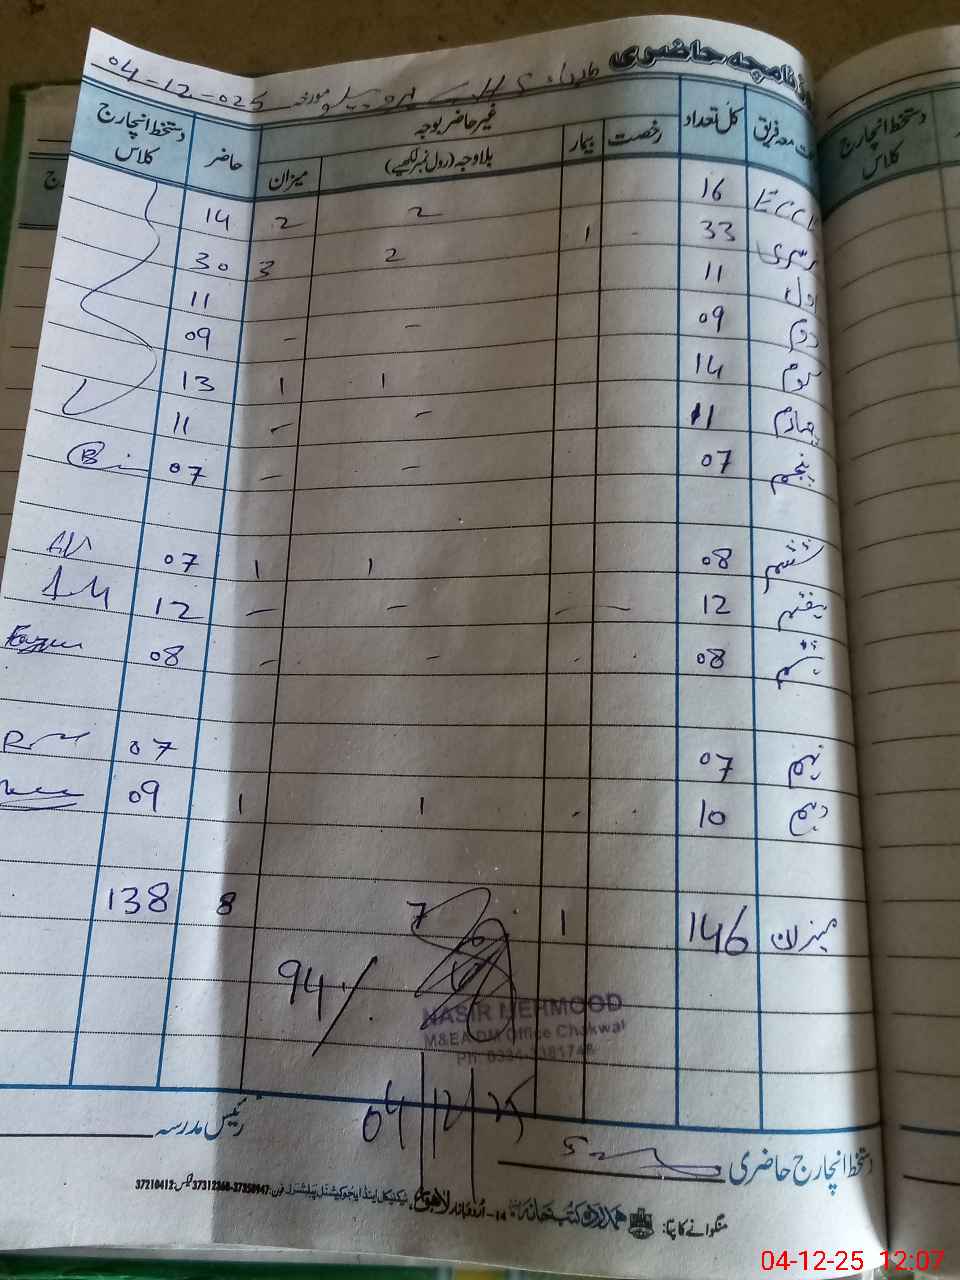 روزنامچہ حاضری طلباء مورخہ 04-12-025
جماعت معہ فریق کل تعداد غیر حاضر بوجہ حاضر دستخط انچارج کلاس
رخصت بیمار بلاوجہ (رول نمبر لکھیے) میزان
ECCE 16 2 2 14
نرسری 33 - 1 2 3 30
اول 11 11
دوم 09 - - 09
سوم 14 1 1 13
چہارم 11 - - 11
پنجم 07 - - 07
ششم 08 1 1 07
ہفتم 12 - - - - 12
ہشتم 08 - - - - 08
نہم 07 07
دہم 10 - - 1 1 09
میزان 146 1 7 8 138
94 %
NASIR MEHMOOD
M&EA DM Office Chakwal
04/12/25
دستخط انچارج حاضری رئیس مدرسہ
منگوانے کا پتہ: ہمدرد کتب خانہ 14-اُردو بازار لاہور
دستخط انچارج کلاس
04-12-25 12:07